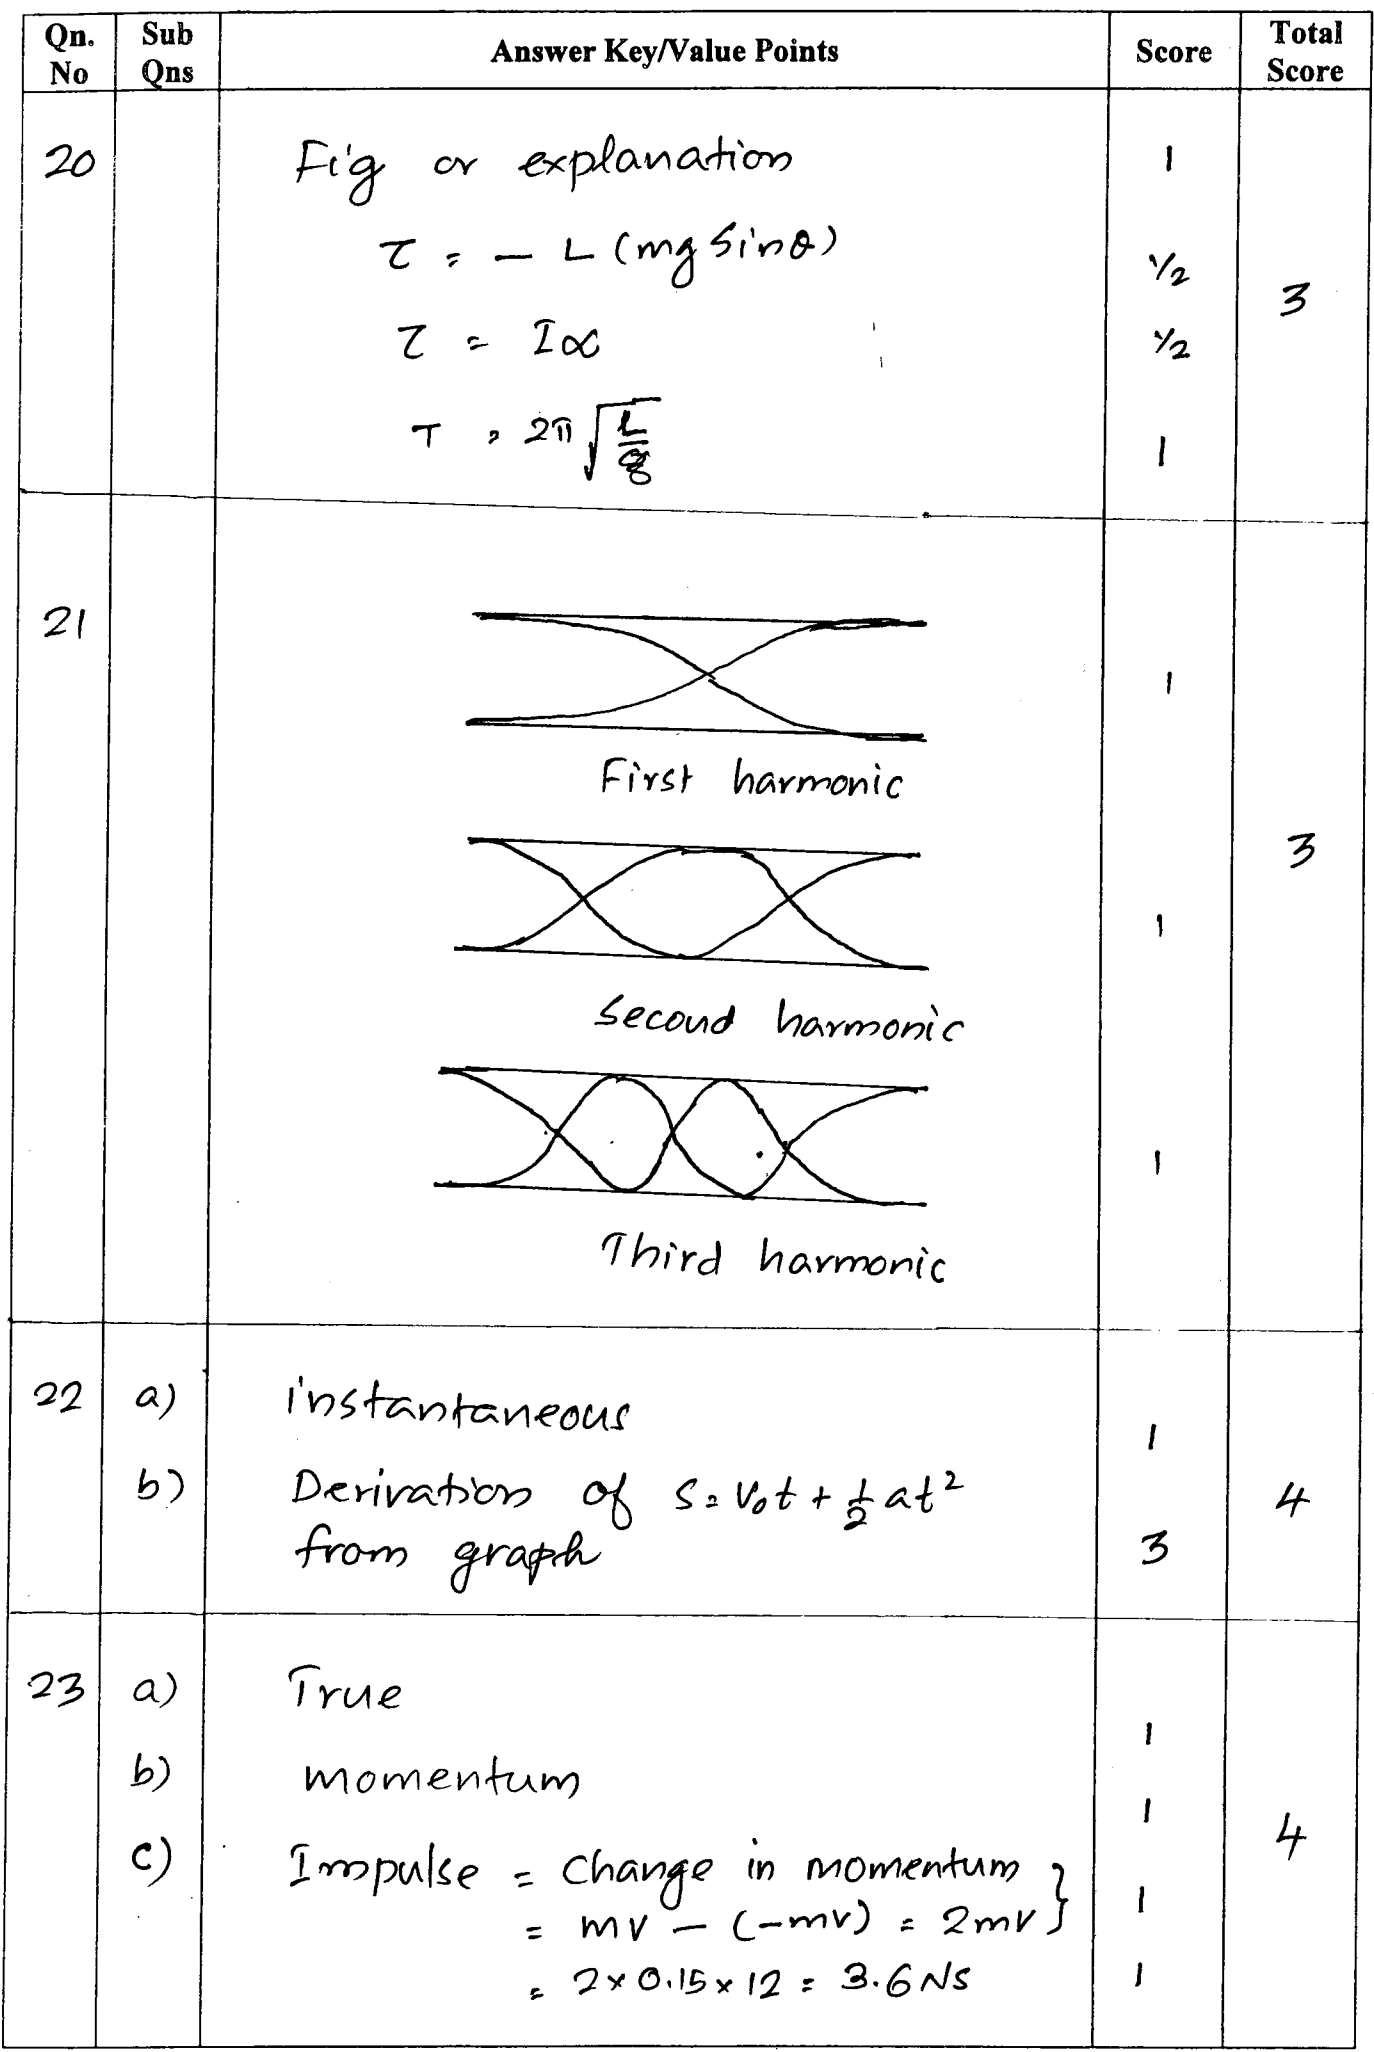 Qn. No Sub Qns Answer Key/Value Points Score Total Score
20 Fig or explanation 1
τ = – L (mg Sinθ) 1/2
3
τ = I∝ 1/2
T = 2π √(L/g) 1
21
1
First harmonic
3
1
Second harmonic
1
Third harmonic
22 a) instantaneous 1
b) Derivation of S = V₀t + 1/2 at² 4
from graph 3
23 a) True 1
b) momentum 1
c) Impulse = Change in momentum } 4
= mv – (–mv) = 2mv 1
= 2 × 0.15 × 12 = 3.6 NS 1